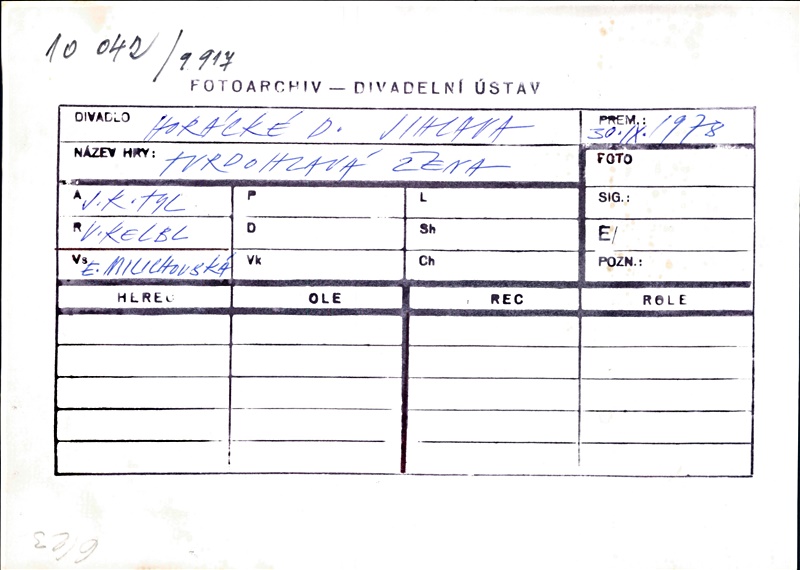 10 042/9 917
FOTOARCHIV — DIVADELNÍ ÚSTAV
DIVADLO HORÁCKÉ D. JIHLAVA PREM.: 30.IX.1978
NÁZEV HRY: TVRDOHLAVÁ ŽENA FOTO
A J.K.TYL P L SIG.:
R V.KELBL D Sh E/
Vs E.MILICHOVSKÁ Vk Ch POZN.:
HEREC OLE REC ROLE